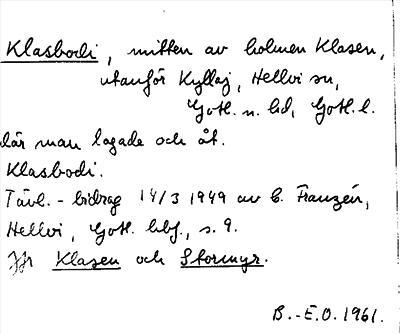 Klasbodi, mitten av holmen Klasen,
utanför Kyllaj, Hellvi sn,
Gotl. n. hd, Gotl. l.
där man lagade och åt.
Klasbodi.
Tävl.-bidrag 14/3 1949 av C. Franzén,
Hellvi, Gotl. hbf., s. 9.
Jfr Klasen och Stormyr.
B.-E.O. 1961.